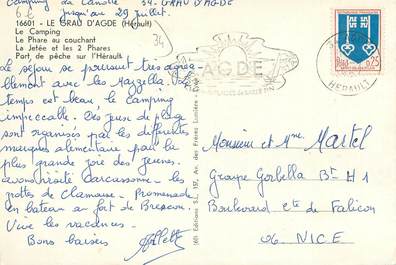 Camping La 34. GRAU D'AGDE
6€ jusqu'au 29 juillet.
34
16601 - LE GRAU D'AGDE (Hérault)
Le Camping
Le Phare au couchant
La Jetée et les 2 Phares
Port de pêche sur l'Hérault
Le séjour se poursuit très agréa-
blement avec les Mazzella. Le
temps est beau le camping
impeccable. Des jeux de plage
sont organisés par les différentes
marques alimentaire pour la
plus grande joie des jeunes.
avons visité Carcassonne. les
grottes de Clamouse. Promenade
en bateau au fort de Brescou.
Vive les vacances.
Bons baisers
AGDE
HERAULT
0,25
Monsieur et Mme Martel
Groupe Gorbella Bt H1
Boulevard cte de Falicon
06 NICE